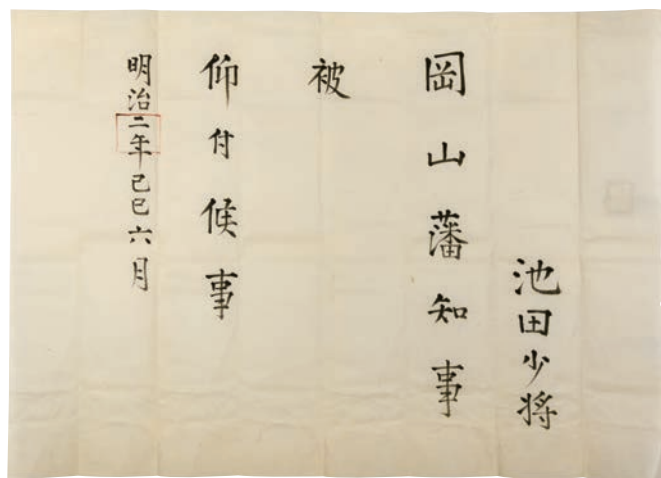 池田少将
岡山藩知事
被
仰付候事
明治二年己巳六月